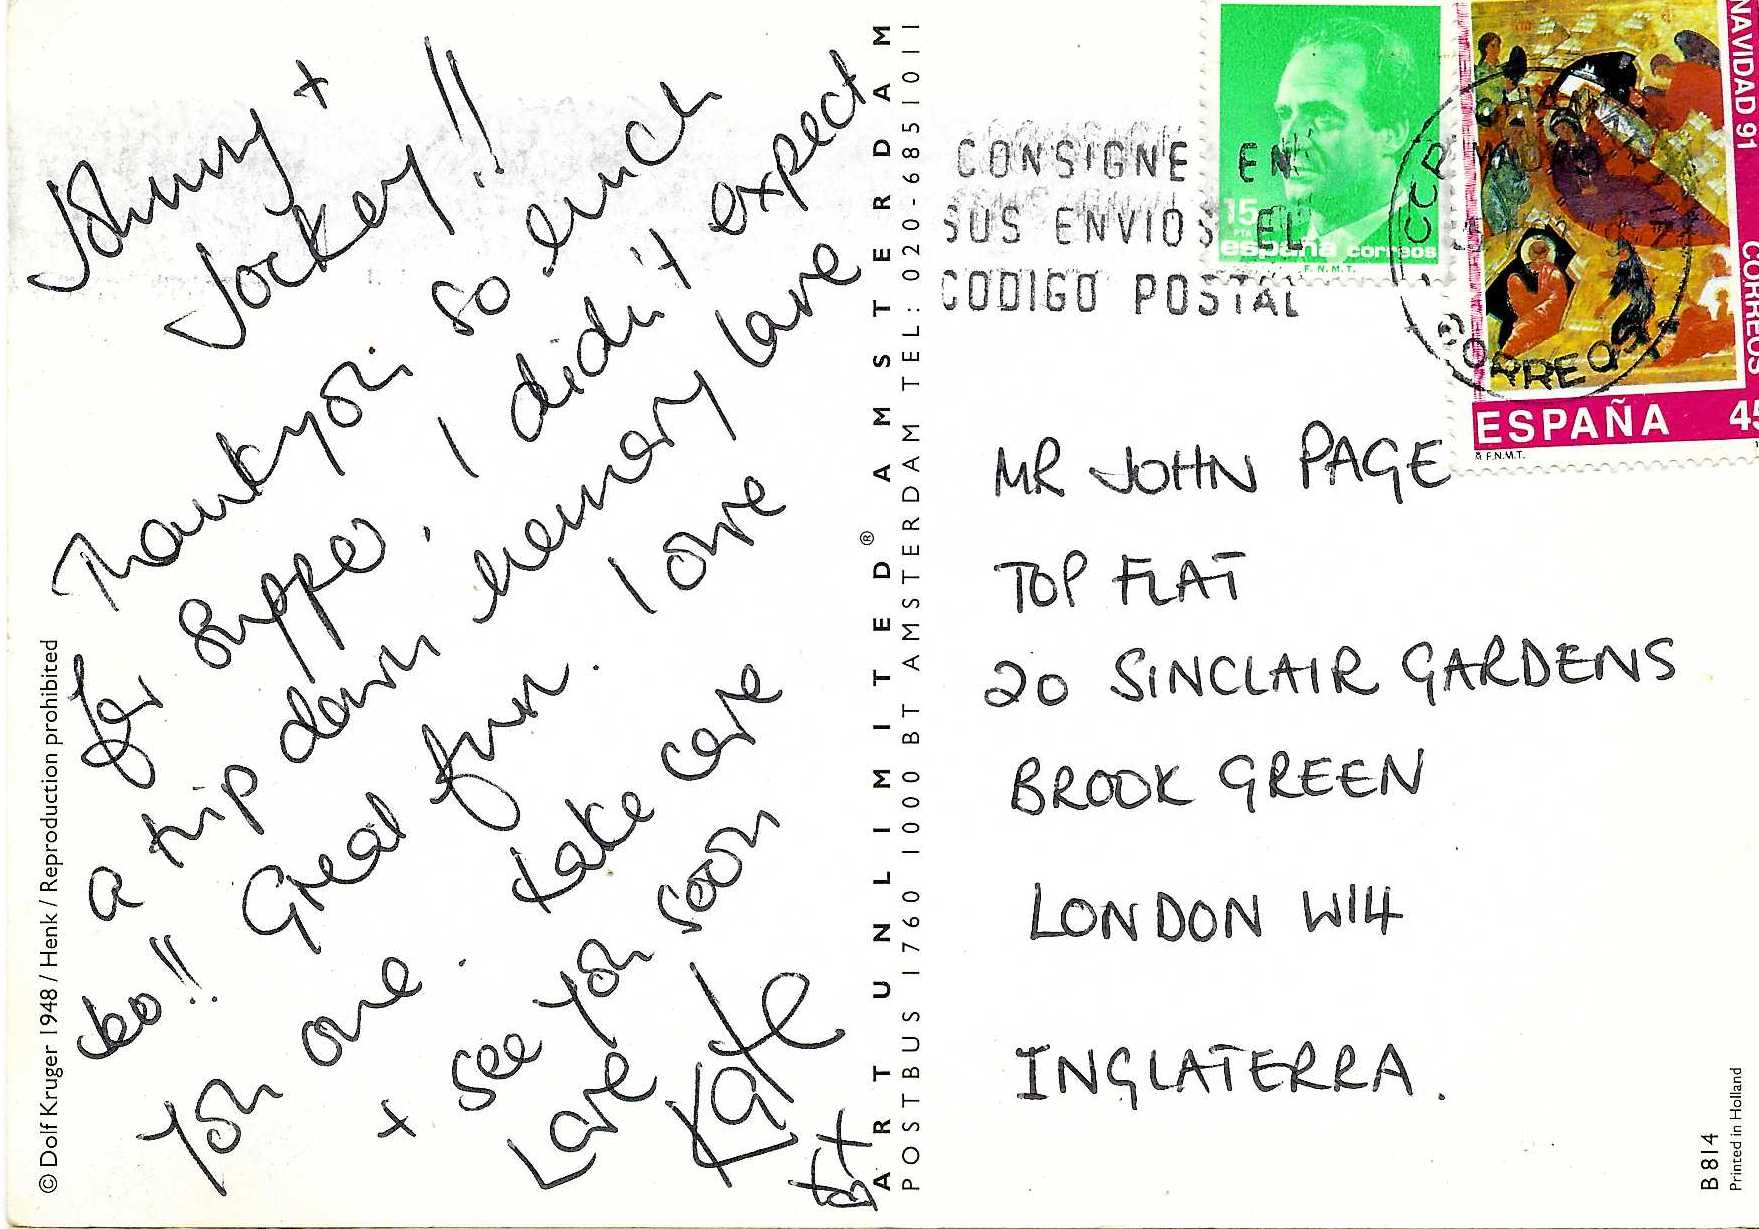 Johnny +
Jockey!!
Thankyou so much
for supper. I didn't expect
a trip down memory lane
too!! Great fun. I owe
you one. take care
+ see you soon
Love
Kate
© Dolf Kruger 1948 / Henk / Reproduction prohibited
ART UNLIMITED® AMSTERDAM
POSTBUS 1760 1000 BT AMSTERDAM TEL: 020-6851011
CONSIGNE EN
SUS ENVIOS EL
CODIGO POSTAL
15
PTA
españa correos
F.N.M.T.
NAVIDAD 91 CORREOS
ESPAÑA 45
F.N.M.T.
CORREOS
MR JOHN PAGE
TOP FLAT
20 SINCLAIR GARDENS
BROOK GREEN
LONDON W14
INGLATERRA.
B 814
Printed in Holland